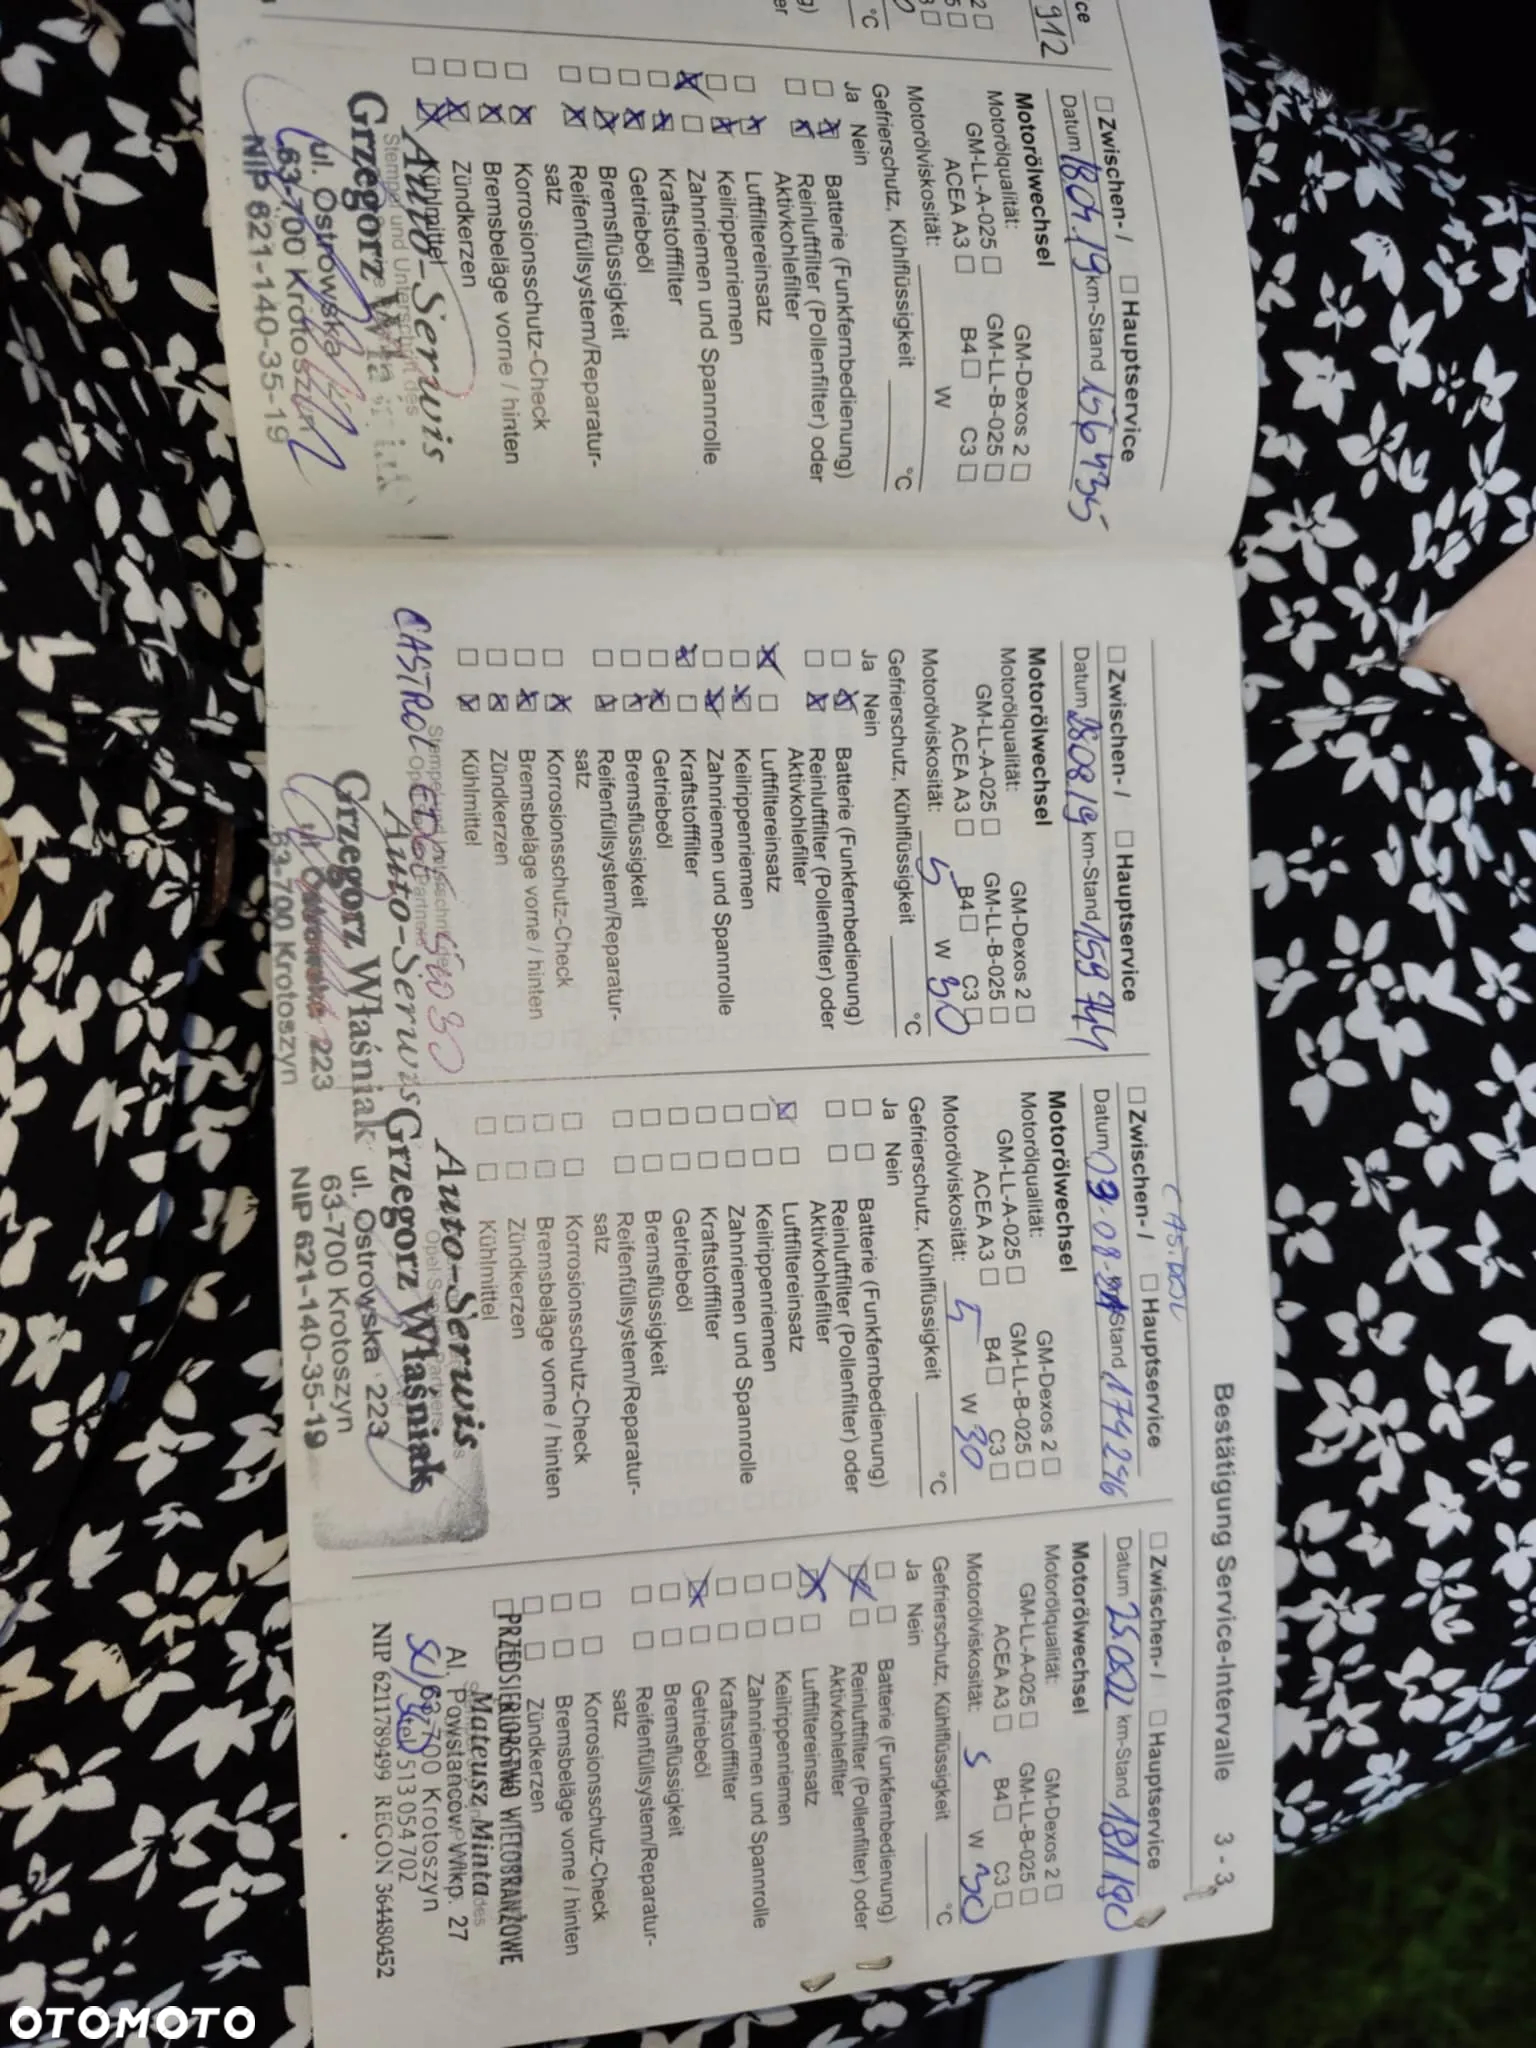 Bestätigung Service-Intervalle 3 - 3
ce
912
°C
Zwischen- / Hauptservice
Datum 18.04.19 km-Stand 156435
Motorölwechsel
Motorölqualität: GM-Dexos 2
GM-LL-A-025 GM-LL-B-025
ACEA A3 B4 C3
Motorölviskosität: W
Gefrierschutz, Kühlflüssigkeit °C
Ja Nein
Batterie (Funkfernbedienung)
Reinluftfilter (Pollenfilter) oder
Aktivkohlefilter
Luftfiltereinsatz
Keilrippenriemen
Zahnriemen und Spannrolle
Kraftstofffilter
Getriebeöl
Bremsflüssigkeit
Reifenfüllsystem/Reparatur-
satz
Korrosionsschutz-Check
Bremsbeläge vorne / hinten
Zündkerzen
Kühlmittel
Auto-Serwis
Stempel und Unterschrift des
Grzegorz
ul. Ostrowska
63-700 Krotoszyn
NIP 621-140-35-19
Zwischen- / Hauptservice
Datum 280819 km-Stand 159744
Motorölwechsel
Motorölqualität: GM-Dexos 2
GM-LL-A-025 GM-LL-B-025
ACEA A3 B4 C3
Motorölviskosität: 5 W 30
Gefrierschutz, Kühlflüssigkeit °C
Ja Nein
Batterie (Funkfernbedienung)
Reinluftfilter (Pollenfilter) oder
Aktivkohlefilter
Luftfiltereinsatz
Keilrippenriemen
Zahnriemen und Spannrolle
Kraftstofffilter
Getriebeöl
Bremsflüssigkeit
Reifenfüllsystem/Reparatur-
satz
Korrosionsschutz-Check
Bremsbeläge vorne / hinten
Zündkerzen
Kühlmittel
CASTROL
Auto-Serwis
Grzegorz Właśniak
ul. Ostrowska 223
63-700 Krotoszyn
CASTROL
Zwischen- / Hauptservice
Datum km-Stand 174246
Motorölwechsel
Motorölqualität: GM-Dexos 2
GM-LL-A-025 GM-LL-B-025
ACEA A3 B4 C3
Motorölviskosität: 5 W 30
Gefrierschutz, Kühlflüssigkeit °C
Ja Nein
Batterie (Funkfernbedienung)
Reinluftfilter (Pollenfilter) oder
Aktivkohlefilter
Luftfiltereinsatz
Keilrippenriemen
Zahnriemen und Spannrolle
Kraftstofffilter
Getriebeöl
Bremsflüssigkeit
Reifenfüllsystem/Reparatur-
satz
Korrosionsschutz-Check
Bremsbeläge vorne / hinten
Zündkerzen
Kühlmittel
Auto-Serwis
Grzegorz Właśniak
ul. Ostrowska 223
63-700 Krotoszyn
NIP 621-140-35-19
Zwischen- / Hauptservice
Datum km-Stand
Motorölwechsel
Motorölqualität: GM-Dexos 2
GM-LL-A-025 GM-LL-B-025
ACEA A3 B4 C3
Motorölviskosität: 5 W 30
Gefrierschutz, Kühlflüssigkeit °C
Ja Nein
Batterie (Funkfernbedienung)
Reinluftfilter (Pollenfilter) oder
Aktivkohlefilter
Luftfiltereinsatz
Keilrippenriemen
Zahnriemen und Spannrolle
Kraftstofffilter
Getriebeöl
Bremsflüssigkeit
Reifenfüllsystem/Reparatur-
satz
Korrosionsschutz-Check
Bremsbeläge vorne / hinten
Zündkerzen
PRZEDSIĘBIORSTWO WIELOBRANŻOWE
Mateusz Minta
Al. Powstańców Wlkp. 27
63-700 Krotoszyn
tel. 513 054 702
NIP 6211789499 REGON 364480452
OTOMOTO